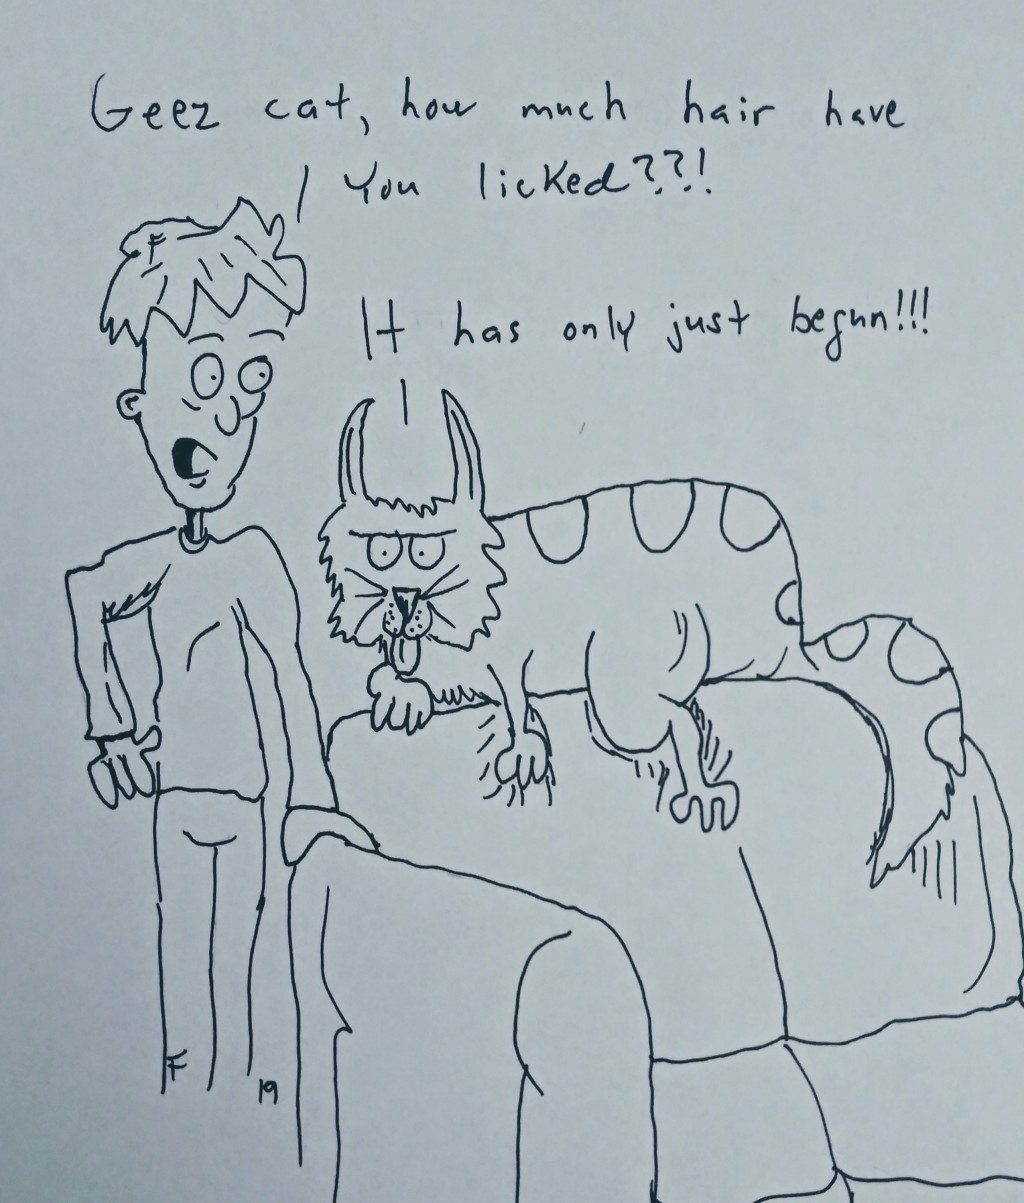 Geez cat, how much hair have
you licked???!
It has only just begun!!!
F
F
19